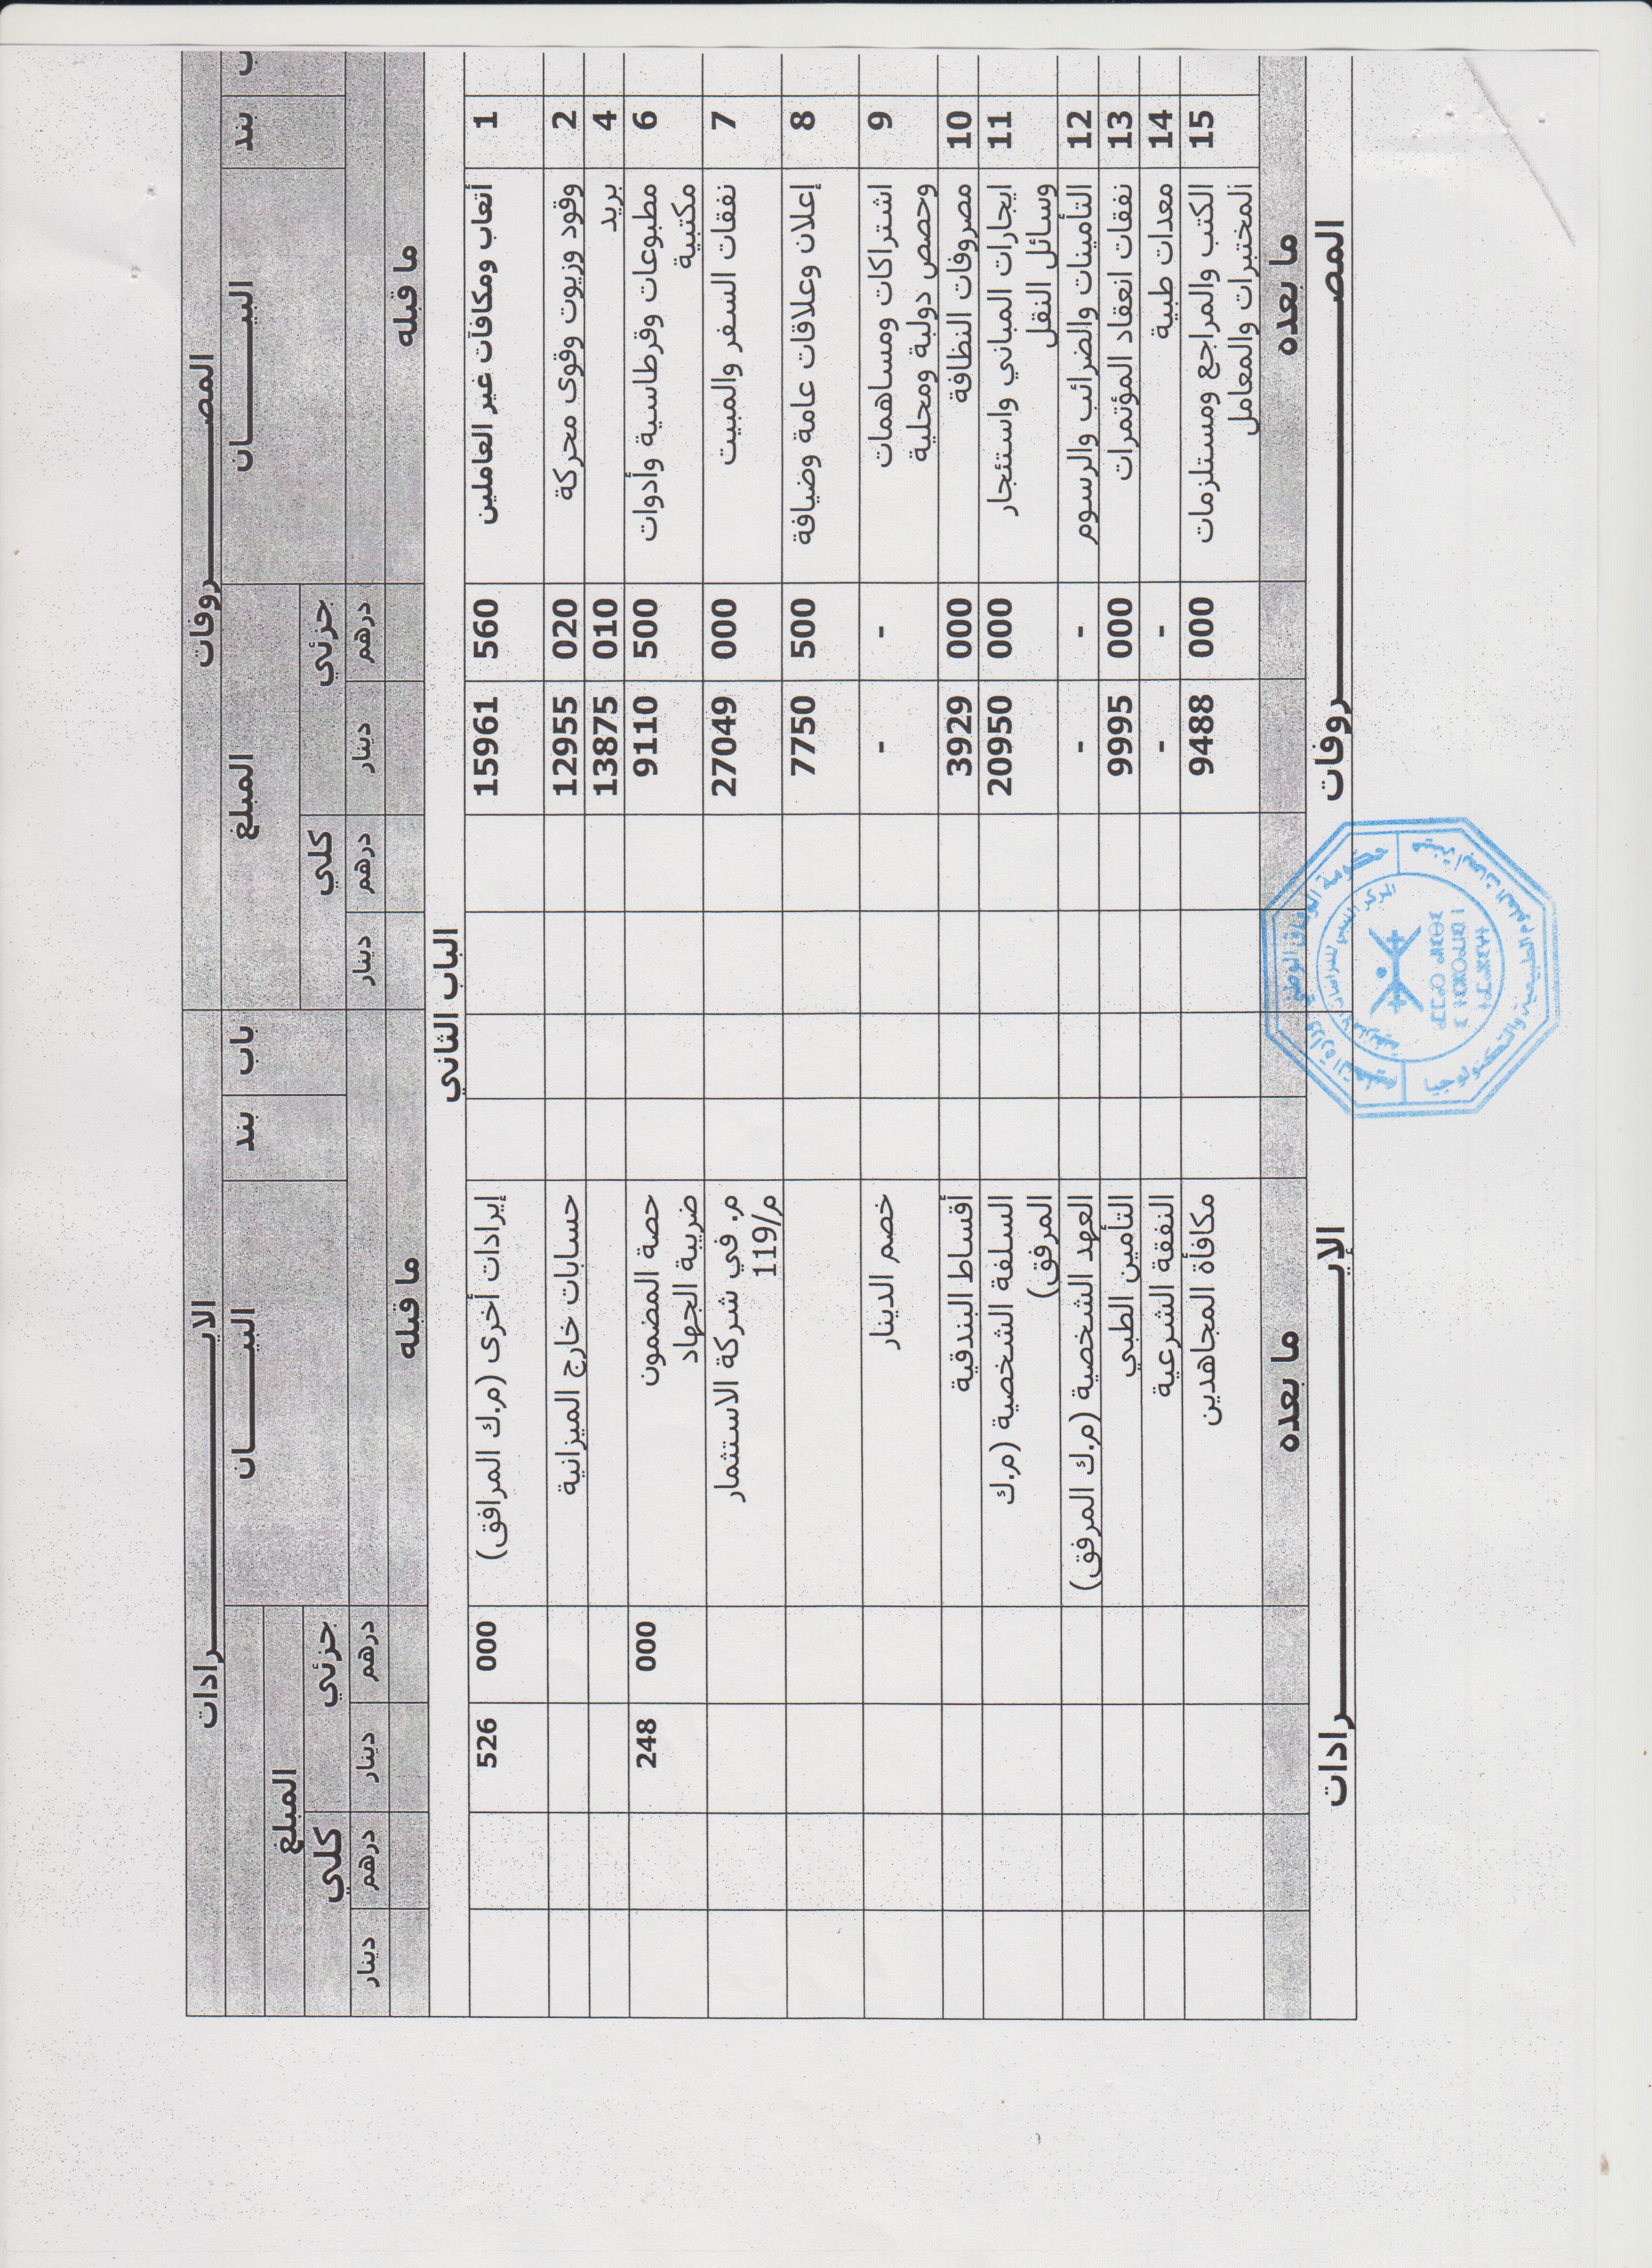 المصـــــــروفات
الايـــــــرادات
ب
بند
البيـــــــان
المبلغ
باب
بند
البيـــــــان
المبلغ
جزئي
كلي
جزئي
كلي
درهم
دينار
درهم
دينار
درهم
دينار
درهم
دينار
ما قبله
ما قبله
الباب الثاني
1 أتعاب ومكافآت غير العاملين 560 15961 إيرادات أخرى (م.ك المرافق) 000 526
2 وقود وزيوت وقوى محركة 020 12955 حسابات خارج الميزانية
4 بريد 010 13875
6 مطبوعات وقرطاسية وأدوات 500 9110 حصة المضمون 000 248
مكتبية ضريبة الجهاد
7 نفقات السفر والمبيت 000 27049 م. في شركة الاستثمار
م/119
8 إعلان وعلاقات عامة وضيافة 500 7750
9 اشتراكات ومساهمات - - خصم الدينار
وحصص دولية ومحلية
10 مصروفات النظافة 000 3929 أقساط البندقية
11 ايجارات المباني واستئجار 000 20950 السلفة الشخصية (م.ك
وسائل النقل المرفق)
12 التأمينات والضرائب والرسوم - - العهد الشخصية (م.ك المرفق)
13 نفقات انعقاد المؤتمرات 000 9995 التأمين الطبي
14 معدات طبية - - النفقة الشرعية
15 الكتب والمراجع ومستلزمات 000 9488 مكافأة المجاهدين
المختبرات والمعامل
ما بعده
ما بعده
المصـــــــروفات
الإيـــــــرادات